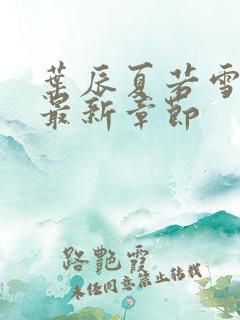 葉辰夏若雪
最新章節
路艷霞
未经同意禁止转载